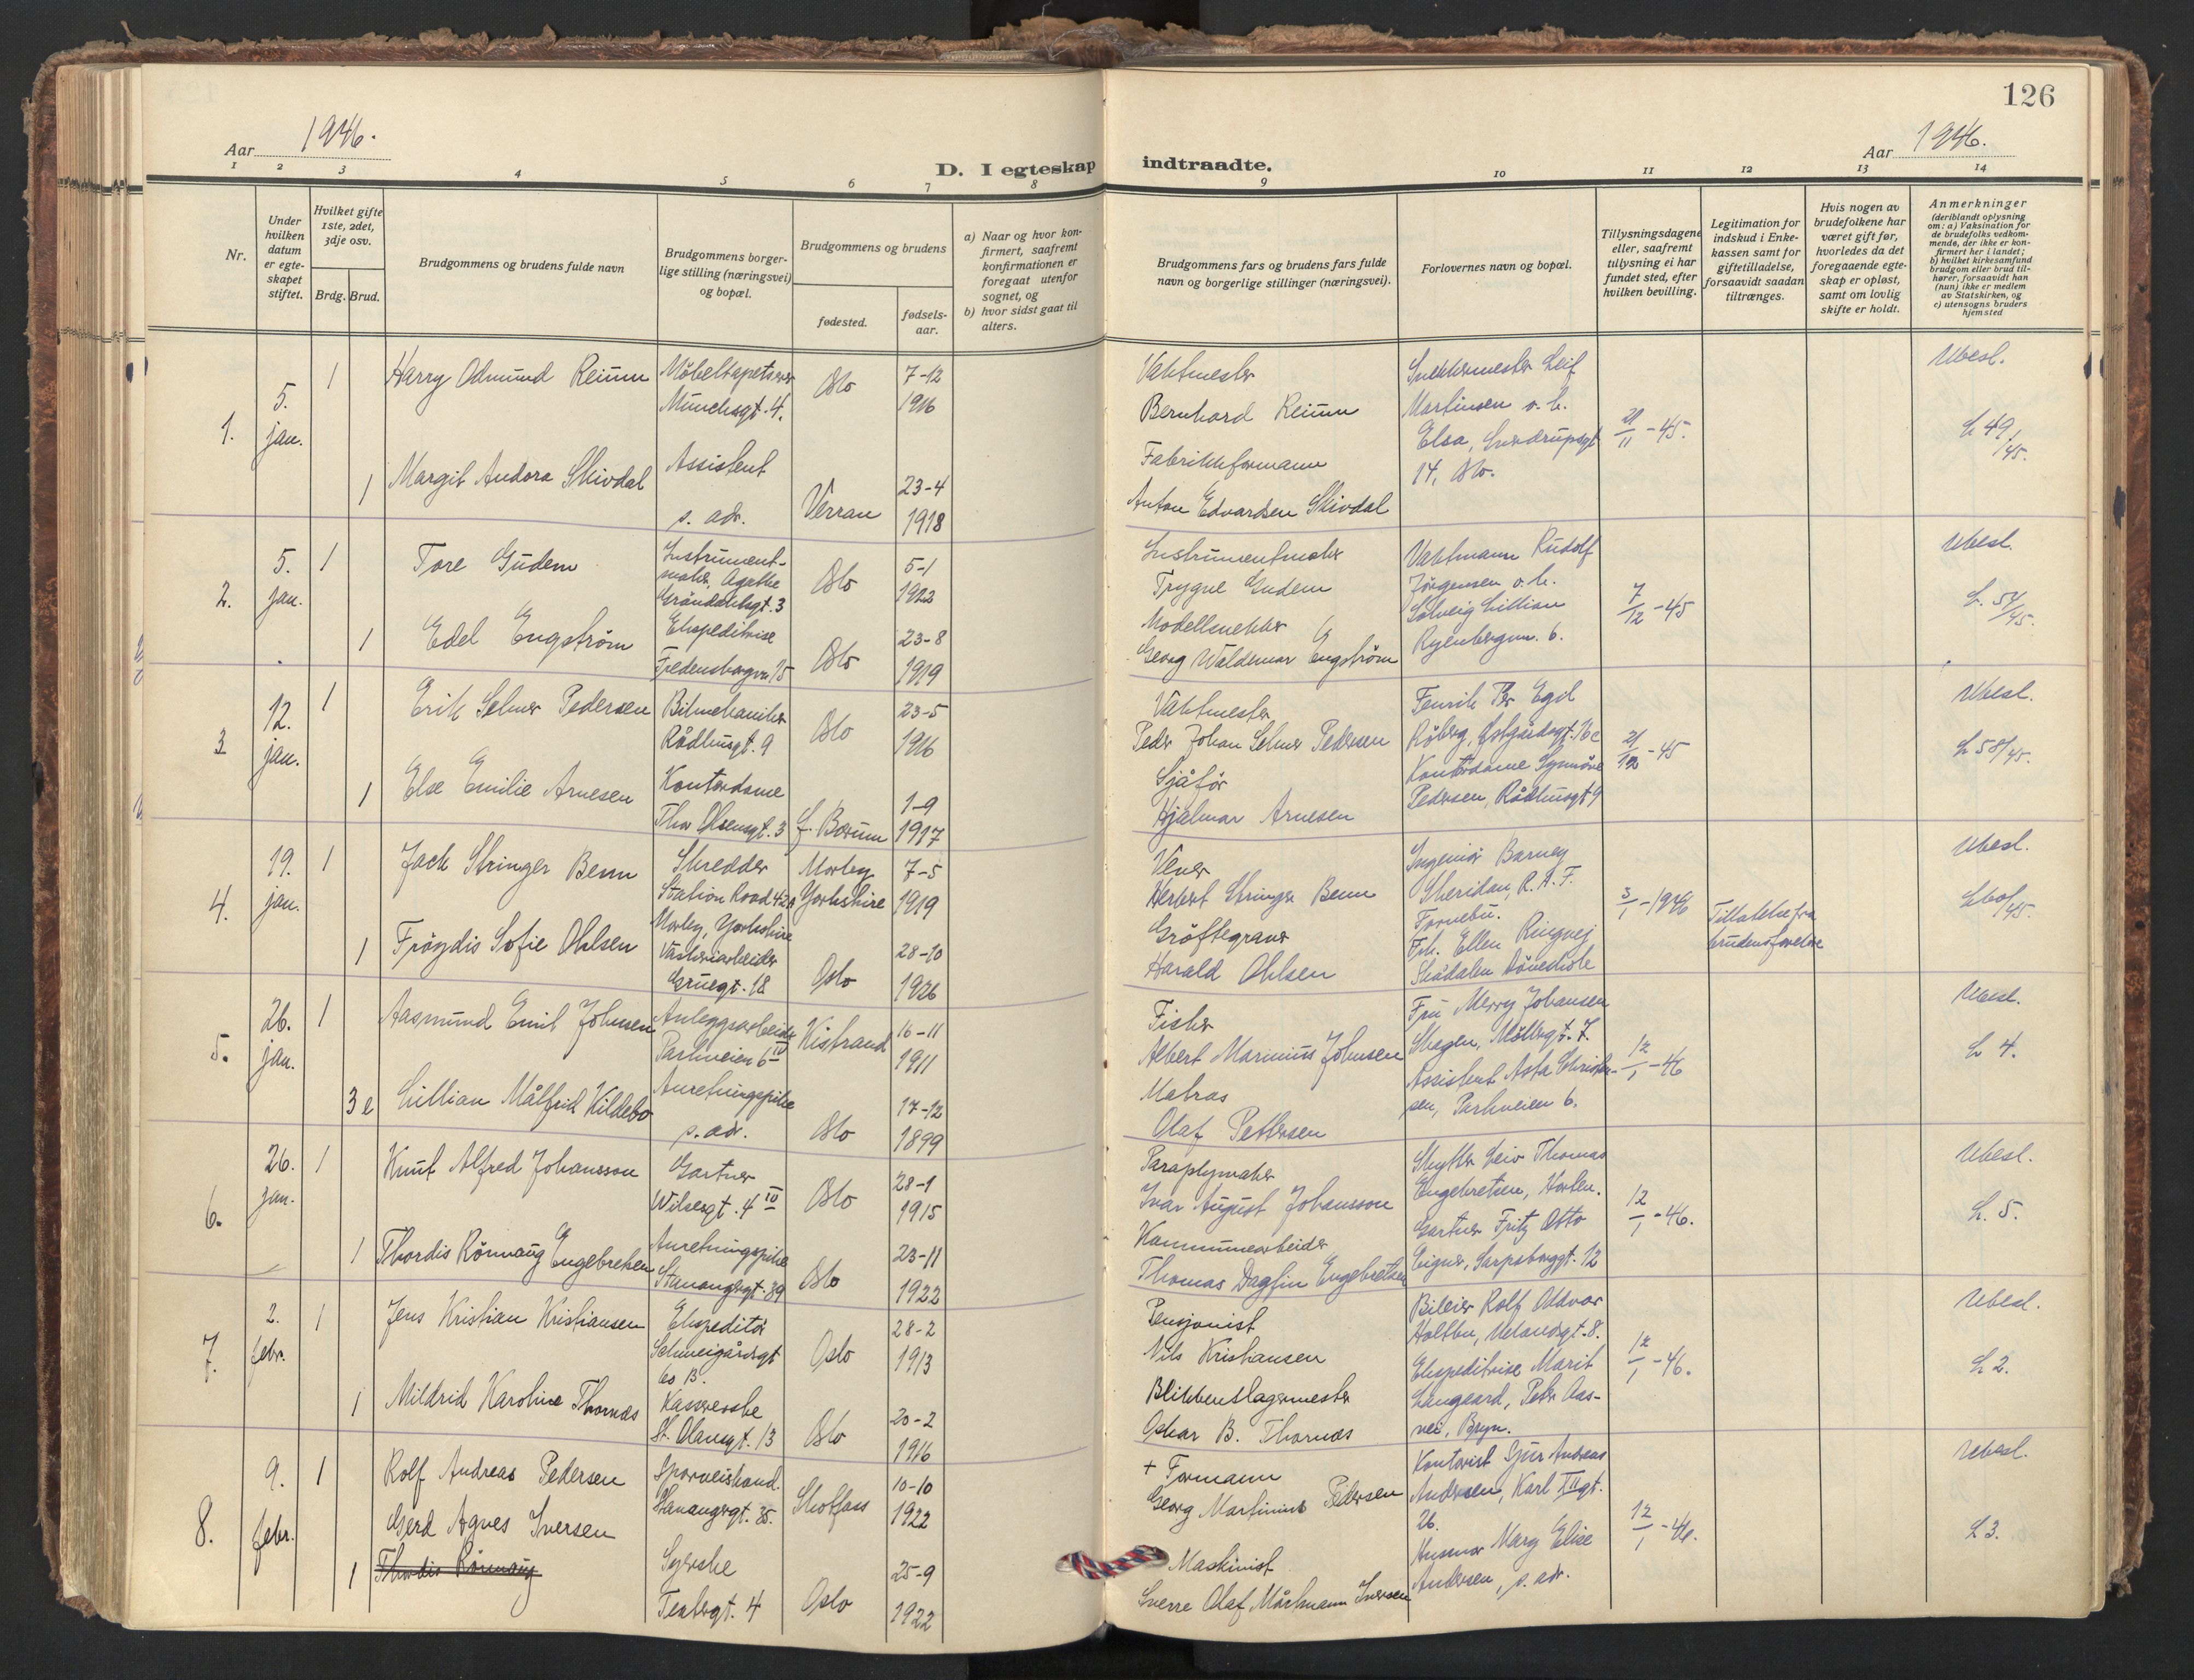 126
Aar 1946.
Aar 1946.
D. I egteskap indtraadte.
1 2 3 4 5 6 7 8 9 10 11 12 13 14
Nr.
Under hvilken datum er egteskapet stiftet.
Hvilket gifte 1ste, 2det, 3dje osv.
Brdg. Brud.
Brudgommens og brudens fulde navn
Brudgommens borgerlige stilling (næringsvei) og bopæl.
Brudgommens og brudens
fødested.
fødselsaar.
a) Naar og hvor konfirmert, saafremt konfirmationen er foregaat utenfor sognet, og
b) hvor sidst gaat til alters.
Brudgommens fars og brudens fars fulde navn og borgerlige stillinger (næringsvei).
Forlovernes navn og bopæl.
Tillysningsdagene eller, saafremt tillysning ei har fundet sted, efter hvilken bevilling.
Legitimation for indskud i Enkekassen samt for giftetilladelse, forsaavidt saadan tiltrænges.
Hvis nogen av brudefolkene har været gift før, hvorledes da det foregaaende egteskap er opløst, samt om lovlig skifte er holdt.
Anmerkninger
(deriblandt oplysning om: a) Vaksination for de brudefolks vedkommende, der ikke er konfirmert her i landet; b) hvilket kirkesamfund brudgom eller brud tilhører, forsaavidt han (hun) ikke er medlem av Statskirken, og c) utensogns bruders hjemsted
1. 5. jan. 1 Harry Odmund Reimn Møbeltapetserer Munchsgt. 4. Oslo 7-12 1916
1 Margit Andora Skivdal Assistent s. adr. Verran 23-4 1918
Vaktmester Bernhard Reimn
Fabrikkformann Anton Edvardsen Skivdal
Snekkermester Leif Martinsen o. h. Elsa, Sverdrupsgt 14, Oslo.
21/11-45.
Ubesl.
L 49/45.
2. 5. jan. 1 Tore Gudem Instrumentmaker, Agathe Grøndahlsgt. 3 Oslo 5-1 1922
1 Edel Engstrøm Ekspeditrise Fredensborgvn. 15 Oslo 23-8 1919
Instrumentmaker Trygve Gudem
Modellsnekker Georg Waldemar Engstrøm
Vaktmann Rudolf Jørgensen o. h. Solveig Lillian Ryenbergvn. 6.
7/12-45
Ubesl.
L. 54/45.
3 12. jan. 1 Erik Selmer Pedersen Bilmekaniker Rådhusgt. 9 Oslo 23-5 1916
1 Else Emilie Arnesen Kontordame Thor Olsensgt. 3 Ø. Bærum 1-9 1917
Vaktmester Peder Johan Selmer Pedersen
Sjåfør Hjalmar Arnesen
Fenrik Per Egil Røberg, Østgårdsgt. 16c
Kontordame Synnøve Pedersen, Rådhusgt 9
21/12-45
Ubesl.
L 58/45.
4. 19. jan. 1 Jack Stringer Benn Skredder Station Road 42A Morley, Yorkshire Morley Yorkshire 7-5 1919
1 Frøydis Sofie Ohlsen Vaskeriarbeider Gruegt. 18 Oslo 28-10 1926
Vever Herbert Stringer Benn
Grøftegraver Harald Ohlsen
Ingeniør Barney Sheridan, R.A.F. Fornebu.
Frk. Ellen Ringvej Skådalen Døveskole
3/1-1946
Tillatelse fra brudens foreldre
Ubesl.
L 60/45.
5. 26. jan. 1 Aasmund Emil Johnsen Anleggsarbeider Parkveien 6 IV Kistrand 16-11 1911
3 e Lillian Målfrid Kildebo Anretningspike s. adr. Oslo 17-12 1899
Fisker Albert Marinius Johnsen
Matros Olaf Pettersen
Fru Merry Johansen Skagen, Møllergt. 7.
Assistent Asta Christensen, Parkveien 6.
12/1-46
Ubesl.
L 4.
6. 26. jan. 1 Knut Alfred Johansson Gartner Wilsesgt. 4 IV Oslo 28-1 1915
1 Thordis Rønnaug Engebretsen Anretningspike Stavangergt. 39 Oslo 23-11 1922
Paraplymaker Ivar August Johansson
Kommunearbeider Thomas Dagfin Engebretsen
Skytter Leiv Thomas Engebretsen, Horten.
Gartner Fritz Otto Eigner, Sarpsborggt. 12
12/1-46.
Ubesl.
L. 5.
7. 2. febr. 1 Jens Kristian Kristiansen Ekspeditør Schweigårdsgt 60 B. Oslo 28-2 1913
1 Mildrid Karoline Thornæs Kassererske St. Olavsgt. 13 Oslo 20-2 1916
Pensjonist Nils Kristiansen
Blikkenslagermester Oskar B. Thornæs
Bileier Rolf Oddvar Holtbu, Uelandsgt. 8.
Ekspeditrise Marit Langaard, Peter Aasvei, Bryn.
12/1-46.
Ubesl.
L 2.
8. 9. febr. 1 Rolf Andreas Pedersen Sporveisband. Stavangergt. 35. Skotfoss 10-10 1922
Gerd Agnes Iversen
1 Thordis Rønnaug Syerske Texbergt. 4 Oslo 25-9 1922
+ Formann Georg Martinius Pedersen
Maskinist Sverre Olaf Mårtmann Iversen
Kontorist Sjur Andreas Andersen, Karl XII gt. 26.
Husmor Mary Elise Andersen, s. adr.
12/1-46.
Ubesl.
L 3.